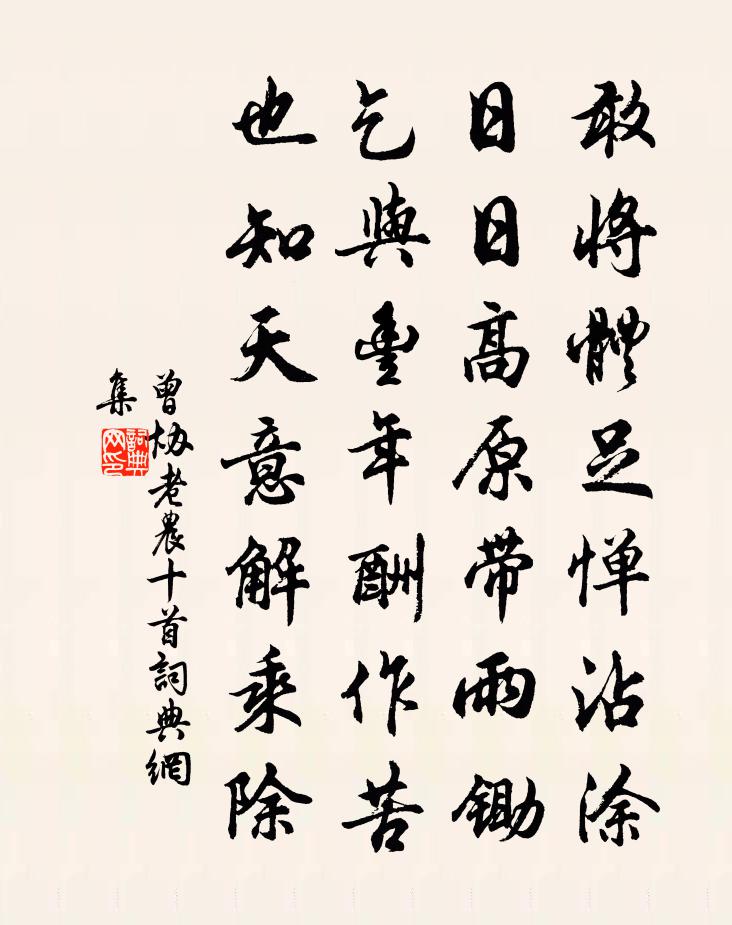 敢將體足憚沾涂
日日高原带雨鋤
乞與豐年酬作苦
也知天意解乘除
曾協老農十首詞典網
集
詞典网印